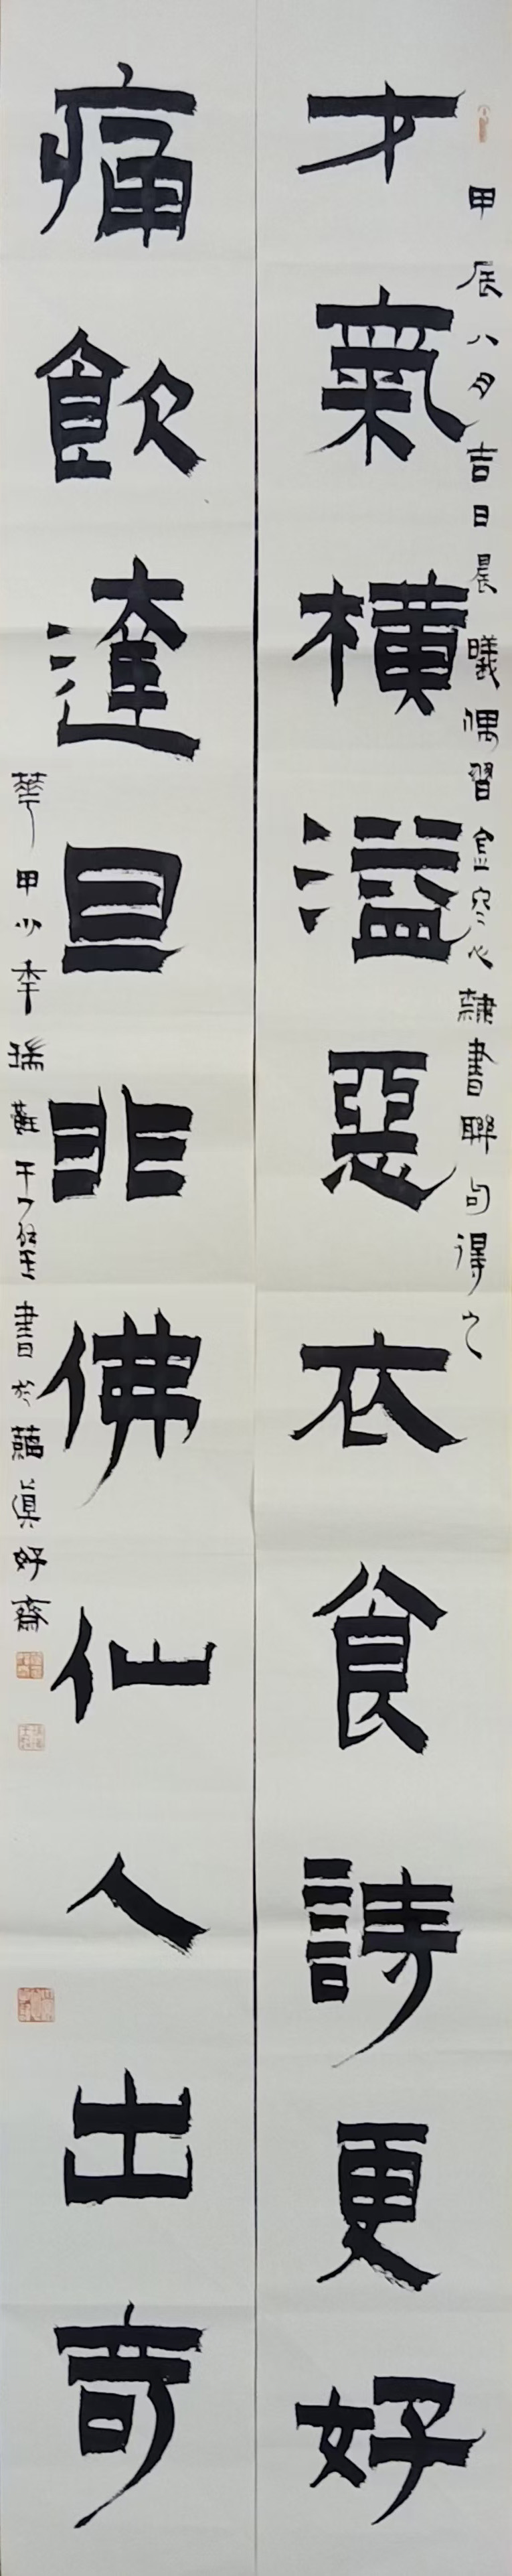 甲辰八月吉日晨曦偶習金寒心隸書聯句得之
才氣橫溢惡衣食詩更好
痛飲達旦非佛仙人出奇
華甲少季瑞 書於 眞好齋